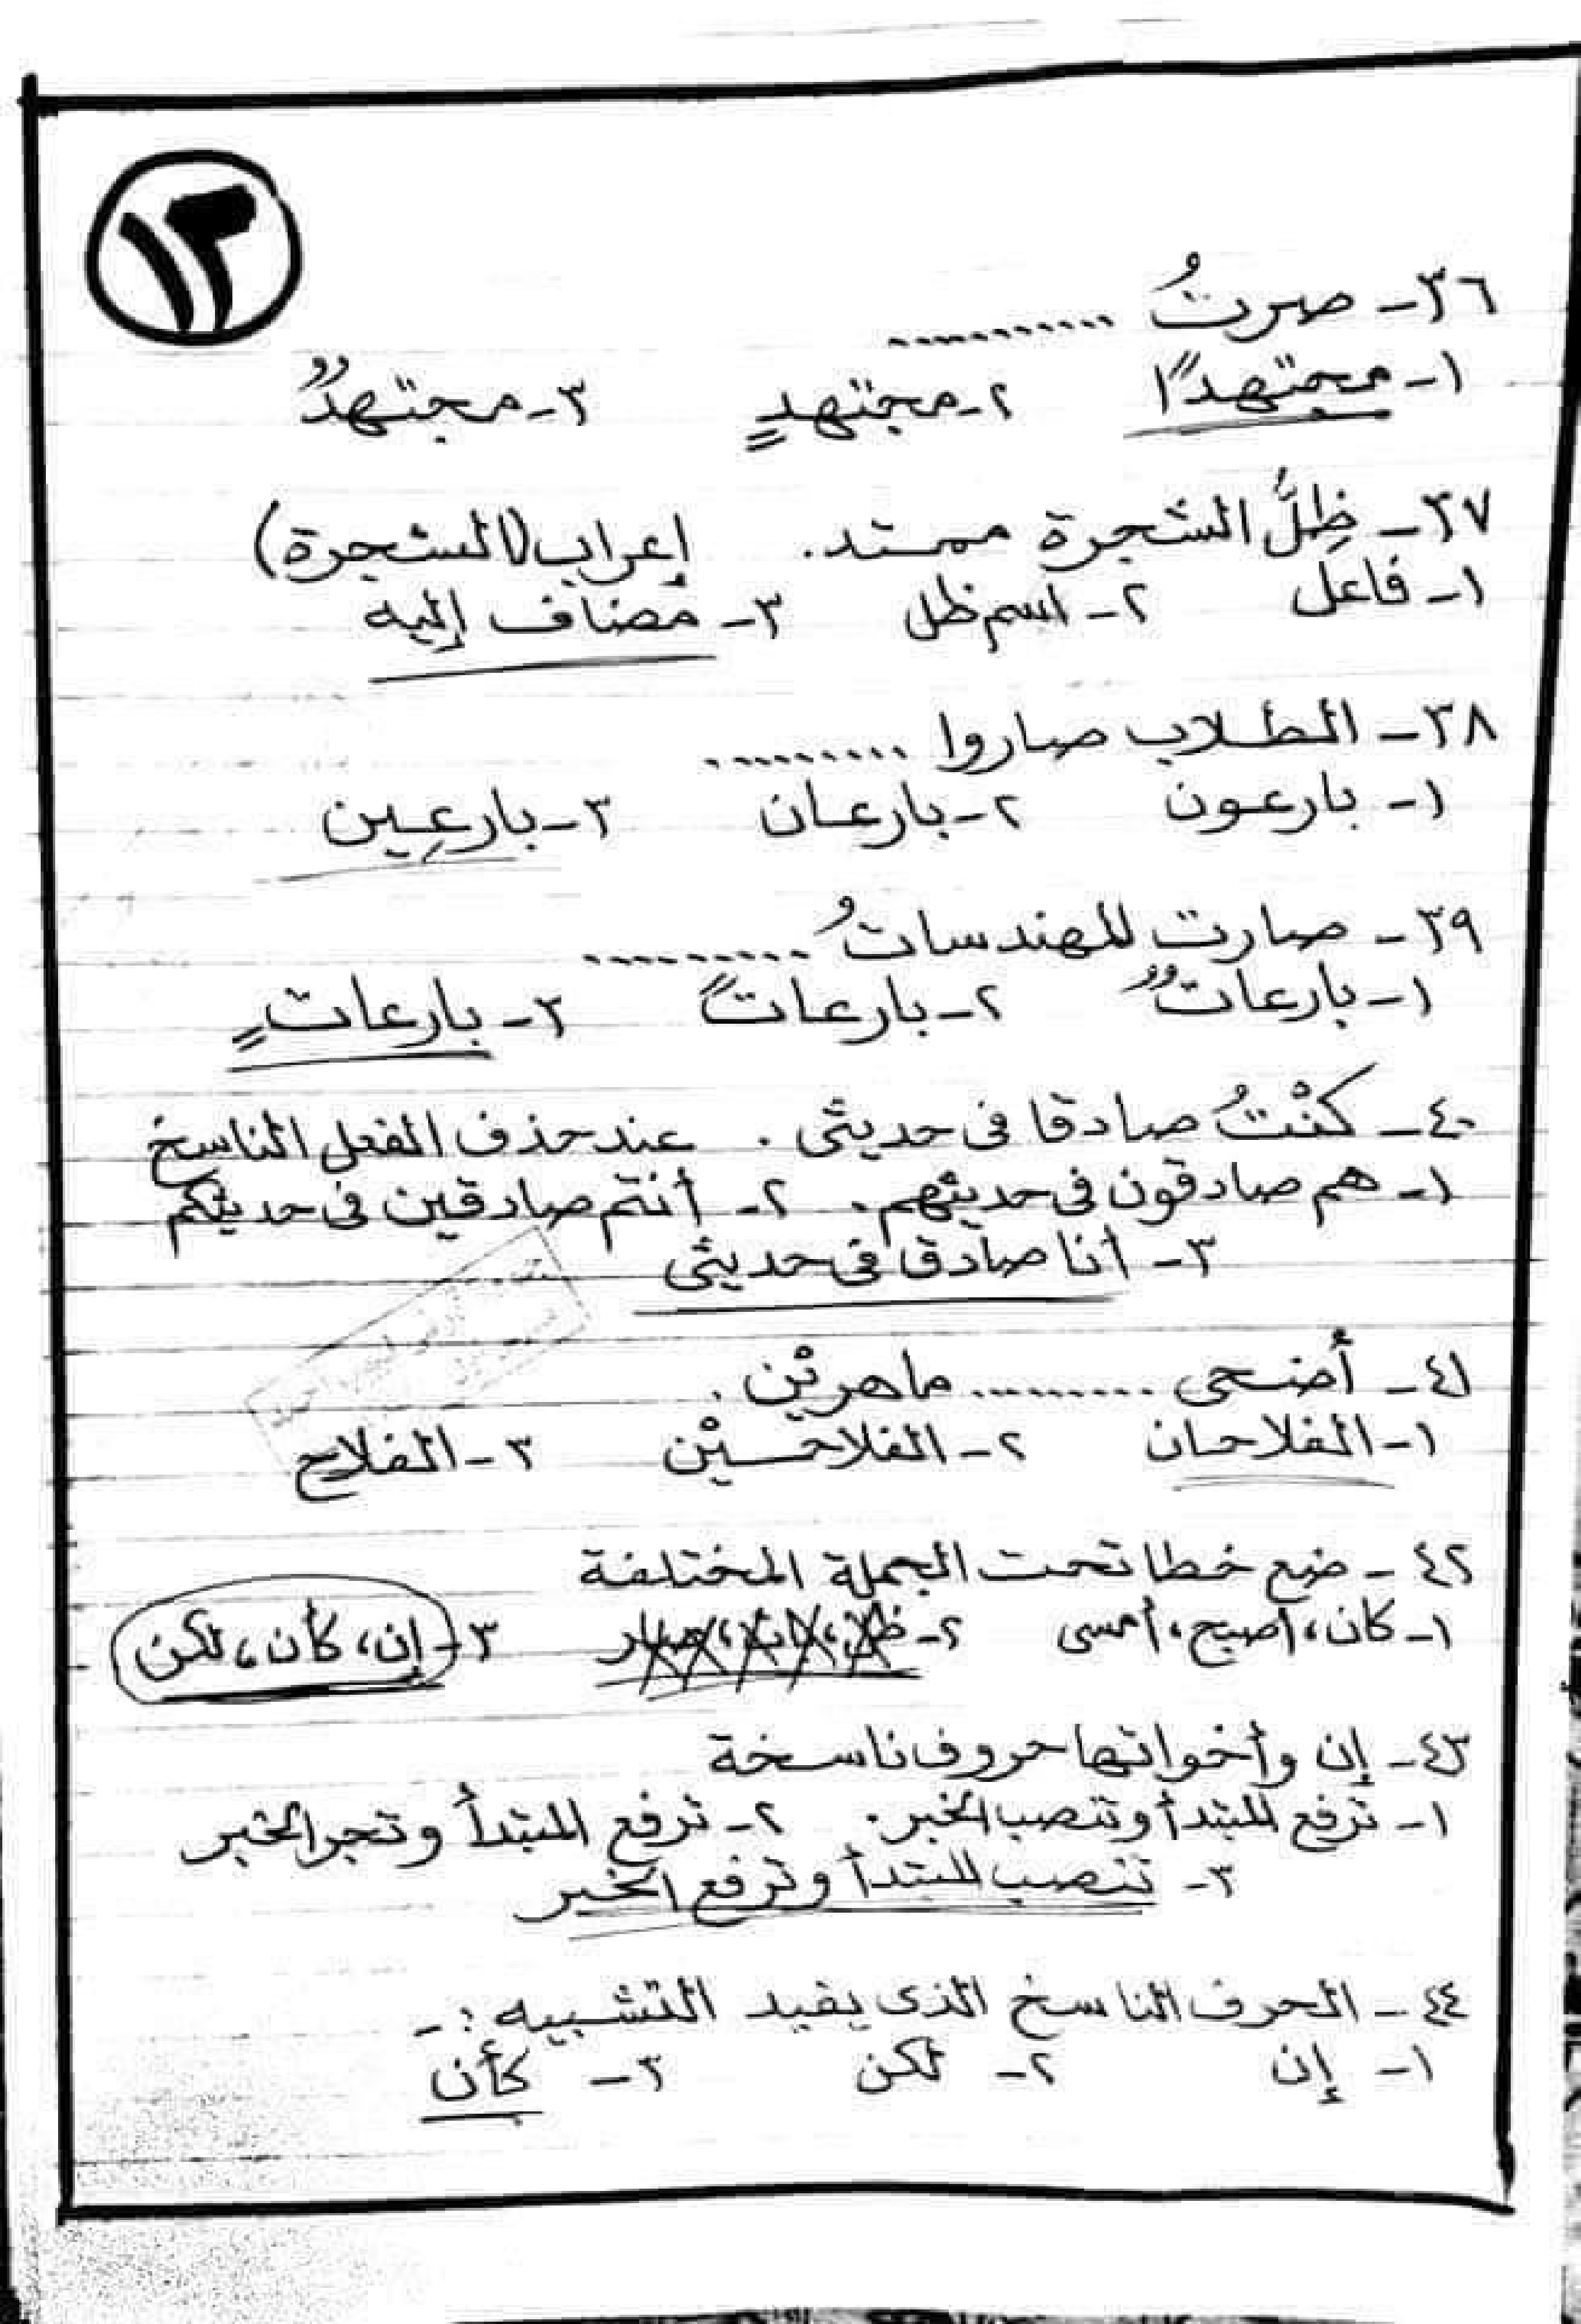 ١٣
٣٦- صرتُ ...........
١- مجتهدًا ٢- مجتهدٍ ٣- مجتهدٌ
٣٧- ظِلُّ الشجرة ممتد. إعراب (الشجرة)
١- فاعل ٢- اسم ظل ٣- مضاف إليه
٣٨- الطلاب صاروا ..........
١- بارعون ٢- بارعان ٣- بارعِين
٣٩- صارت المهندساتُ ..........
١- بارعاتٌ ٢- بارعاتً ٣- بارعاتٍ
٤٠- كنْتُ صادقا فى حديثى . عند حذف الفعل الناسخ
١- هم صادقون فى حديثهم. ٢- أنتم صادقين فى حديثكم
٣- أنا صادق فى حديثى
٤١- أضحى .......... ماهريْن .
١- الفلاحان ٢- الفلاحيْن ٣- الفلاح
٤٢- ضع خطا تحت الجملة المختلفة
١- كان، أصبح، أمسى ٢- ٣- إن، كأن، لكن
٤٣- إن وأخواتها حروف ناسخة
١- ترفع المبتدأ وتنصب الخبر. ٢- ترفع المبتدأ وتجر الخبر
٣- تنصب المبتدأ وترفع الخبر
٤٤- الحرف الناسخ الذى يفيد التشبيه :-
١- إن ٢- لكن ٣- كأن